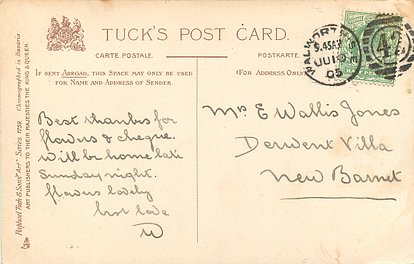 TUCK'S POST CARD.
CARTE POSTALE.
POSTKARTE.
IF SENT ABROAD, THIS SPACE MAY ONLY BE USED
FOR NAME AND ADDRESS OF SENDER.
(FOR ADDRESS ONLY)
Raphael Tuck & Sons' "Art" Series 1258.
ART PUBLISHERS TO THEIR MAJESTIES THE KING & QUEEN
Chromographed in Bavaria
WALWORTH
9.45AM
05
42
Best thanks for
flowers & cheque.
Will be home late
Sunday night.
flowers lovely
best love
Mrs E Wallis Jones
Derwent Villa
New Barnet